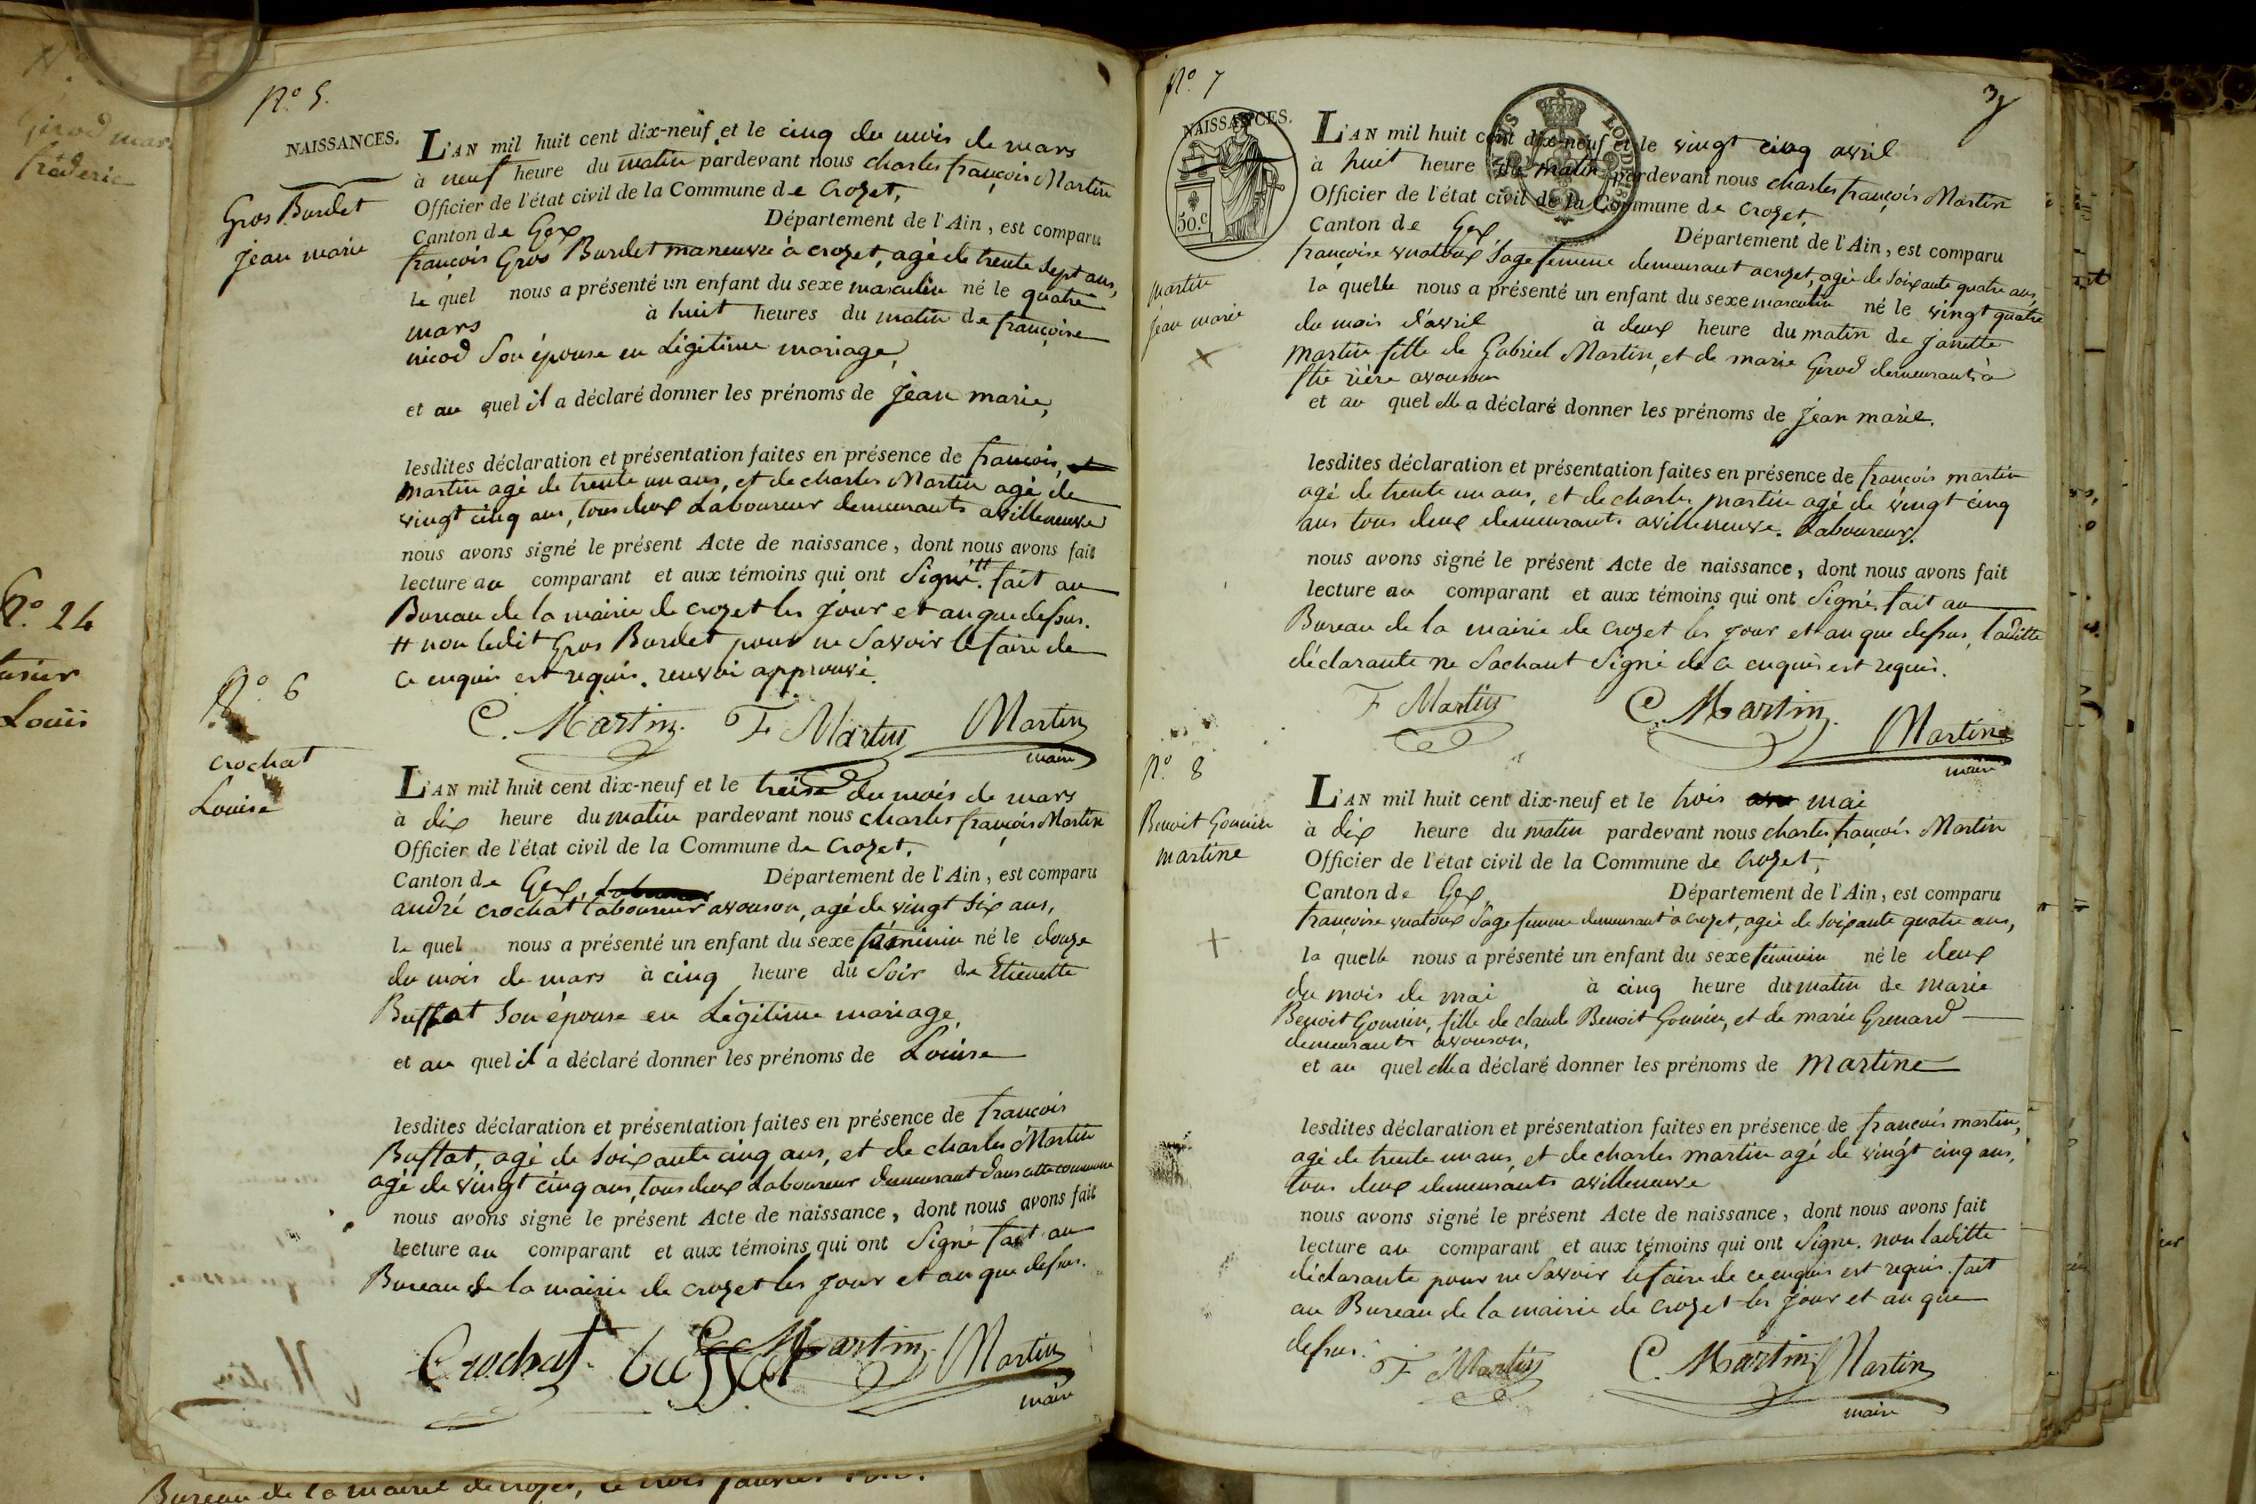 N.o 5.
NAISSANCES.
Gros Burdet
jean marie
L'AN mil huit cent dix-neuf et le cinq du mois de mars
à neuf heure du matin pardevant nous charles françois Martin
Officier de l'état civil de la Commune de Crozet,
Canton de Gex Département de l'Ain, est comparu
françois Gros Burdet maneuvre à crozet, agé de trente sept ans,
le quel nous a présenté un enfant du sexe masculin né le quatre
mars à huit heures du matin de françoise
nicod son épouse en Légitime mariage,
et au quel il a déclaré donner les prénoms de jean marie,
lesdites déclaration et présentation faites en présence de francois,
Martin agé de trente un ans, et de charles Martin agé de
vingt cinq ans, tous deux Laboureur demeurants avilleneuve
nous avons signé le présent Acte de naissance, dont nous avons fait
lecture au comparant et aux témoins qui ont Signé.# fait au
Bureau de la mairie de crozet les jour et an que dessus.
# non ledit Gros Burdet pour ne Savoir le faire de
ce enquis est requis. renvoi approuvé.
C. Martin. F Martin Martin
maire
N.o 6
crochat
Louise
L'AN mil huit cent dix-neuf et le treise du mois de mars
à dix heure du matin pardevant nous charles françois Martin
Officier de l'état civil de la Commune de Crozet,
Canton de Gex, Département de l'Ain, est comparu
andré crochat laboureur avouson, agé de vingt six ans,
le quel nous a présenté un enfant du sexe féminin né le douze
du mois de mars à cinq heure du Soir de Etienette
Buffat son épouse en Légitime mariage,
et au quel il a déclaré donner les prénoms de Louise
lesdites déclaration et présentation faites en présence de francois
Buffat, agé de soixante cinq ans, et de charles Martin
agé de vingt cinq ans, tous deux Laboureur demeurant dans cette commune
nous avons signé le présent Acte de naissance, dont nous avons fait
lecture au comparant et aux témoins qui ont Signé fait au
Bureau de la mairie de crozet les jour et an que dessus.
Crochat buffat C. Martin. Martin
maire
N.o 7
3
NAISSANCES.
50.c
martin
jean marie
L'AN mil huit cent dix-neuf et le vingt cinq avril
à huit heure du matin pardevant nous charles françois Martin
Officier de l'état civil de la Commune de Crozet,
Canton de Gex Département de l'Ain, est comparu
françoise vuatoux Sage femme demeurant acrozet, agée de soixante quatre ans,
la quelle nous a présenté un enfant du sexe masculin né le vingt quatre
du mois d'avril à deux heure du matin de janette
Martin fille de Gabriel Martin, et de marie Girod demeurants à
avouson
et au quel elle a déclaré donner les prénoms de jean marie.
lesdites déclaration et présentation faites en présence de françois martin
agé de trente un ans, et de charles martin agé de vingt cinq
ans tous deux demeurants avilleneuve. Laboureur.
nous avons signé le présent Acte de naissance, dont nous avons fait
lecture au comparant et aux témoins qui ont Signé, fait au
Bureau de la mairie de crozet les jour et an que dessus, laditte
déclarante ne Sachant signé de ce enquis est requis.
F Martin C. Martin. Martin
maire
N.o 8
Benoit Gounin
martine
L'AN mil huit cent dix-neuf et le trois mai
à dix heure du matin pardevant nous charles françois Martin
Officier de l'état civil de la Commune de Crozet,
Canton de Gex Département de l'Ain, est comparu
françoise vuatoux Sage femme demeurant à crozet, agée de soixante quatre ans,
la quelle nous a présenté un enfant du sexe féminin né le deux
du mois de mai à cinq heure du matin de marie
Benoit Gounin, fille de claude Benoit Gounin, et de marie Grenard
demeurants avouson,
et au quel elle a déclaré donner les prénoms de Martine
lesdites déclaration et présentation faites en présence de françois martin,
agé de trente un ans, et de charles martin agé de vingt cinq ans,
tous deux demeurants avilleneuve
nous avons signé le présent Acte de naissance, dont nous avons fait
lecture au comparant et aux témoins qui ont Signé. non laditte
déclarante pour ne Savoir le faire de ce enquis est requis. fait
au Bureau de la mairie de crozet les jour et an que
dessus.
F Martin C. Martin. Martin
maire
N.o 24
Louis